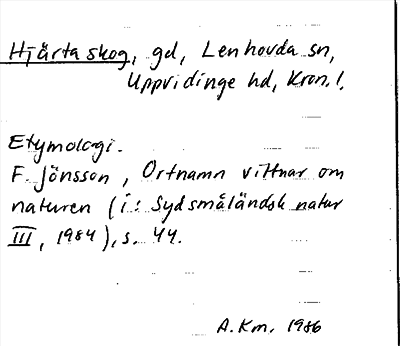 Hjärtaskog, gd, Lenhovda sn,
Uppvidinge hd, Kron. l.
Etymologi.
F. Jönsson, Ortnamn vittnar om
naturen (i: Sydsmåländsk natur
III, 1984), s. 44.
A.Km. 1986